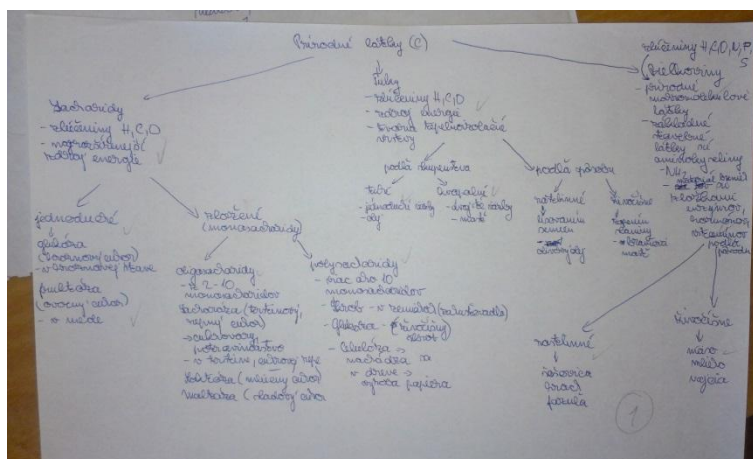 Prírodné látky (C)
Sacharidy
- zlúčeniny H,C,O
- najrozšírenejší
zdroj energie
jednoduché
glukóza
(hroznový cukor)
- v hroznovej šťave
fruktóza
(ovocný cukor)
- v mede
zložené
(monosacharidy)
oligosacharidy
- z 2-10
monosacharidov
Sacharóza (trstinový,
repný cukor)
→ cukrovary
potravinárstvo
- v trstine, cukrovej repe
Laktóza (mliečny cukor)
Maltóza (sladový cukor
polysacharidy
- viac ako 10
monosacharidov
- Škrob - v zemiakoch
- (živočíšny
škrob
- Celulóza →
nachádza sa
v dreve →
výroba papiera
Tuky
- zlúčeniny H,C,O
- zdroj energie
- tvorba tepelnoizolačnej
vrstvy
podľa skupenstva
tuhé
kvapalné
- olej
- masť
podľa pôvodu
rastlinné
lisovaním
semien
olivový olej
živočíšne
topením
slaniny
masť
zlúčeniny H,C,O,N,P,
S
Bielkoviny
- prírodné
makromolekulové
látky
- základné
stavebné
látky sú
aminokyseliny
- NH2
zložkami
enzýmov,
hormónov,
vitamínov
podľa
pôvodu
rastlinné
šošovica
hrach
fazuľa
živočíšne
mäso
mlieko
vajcia
1